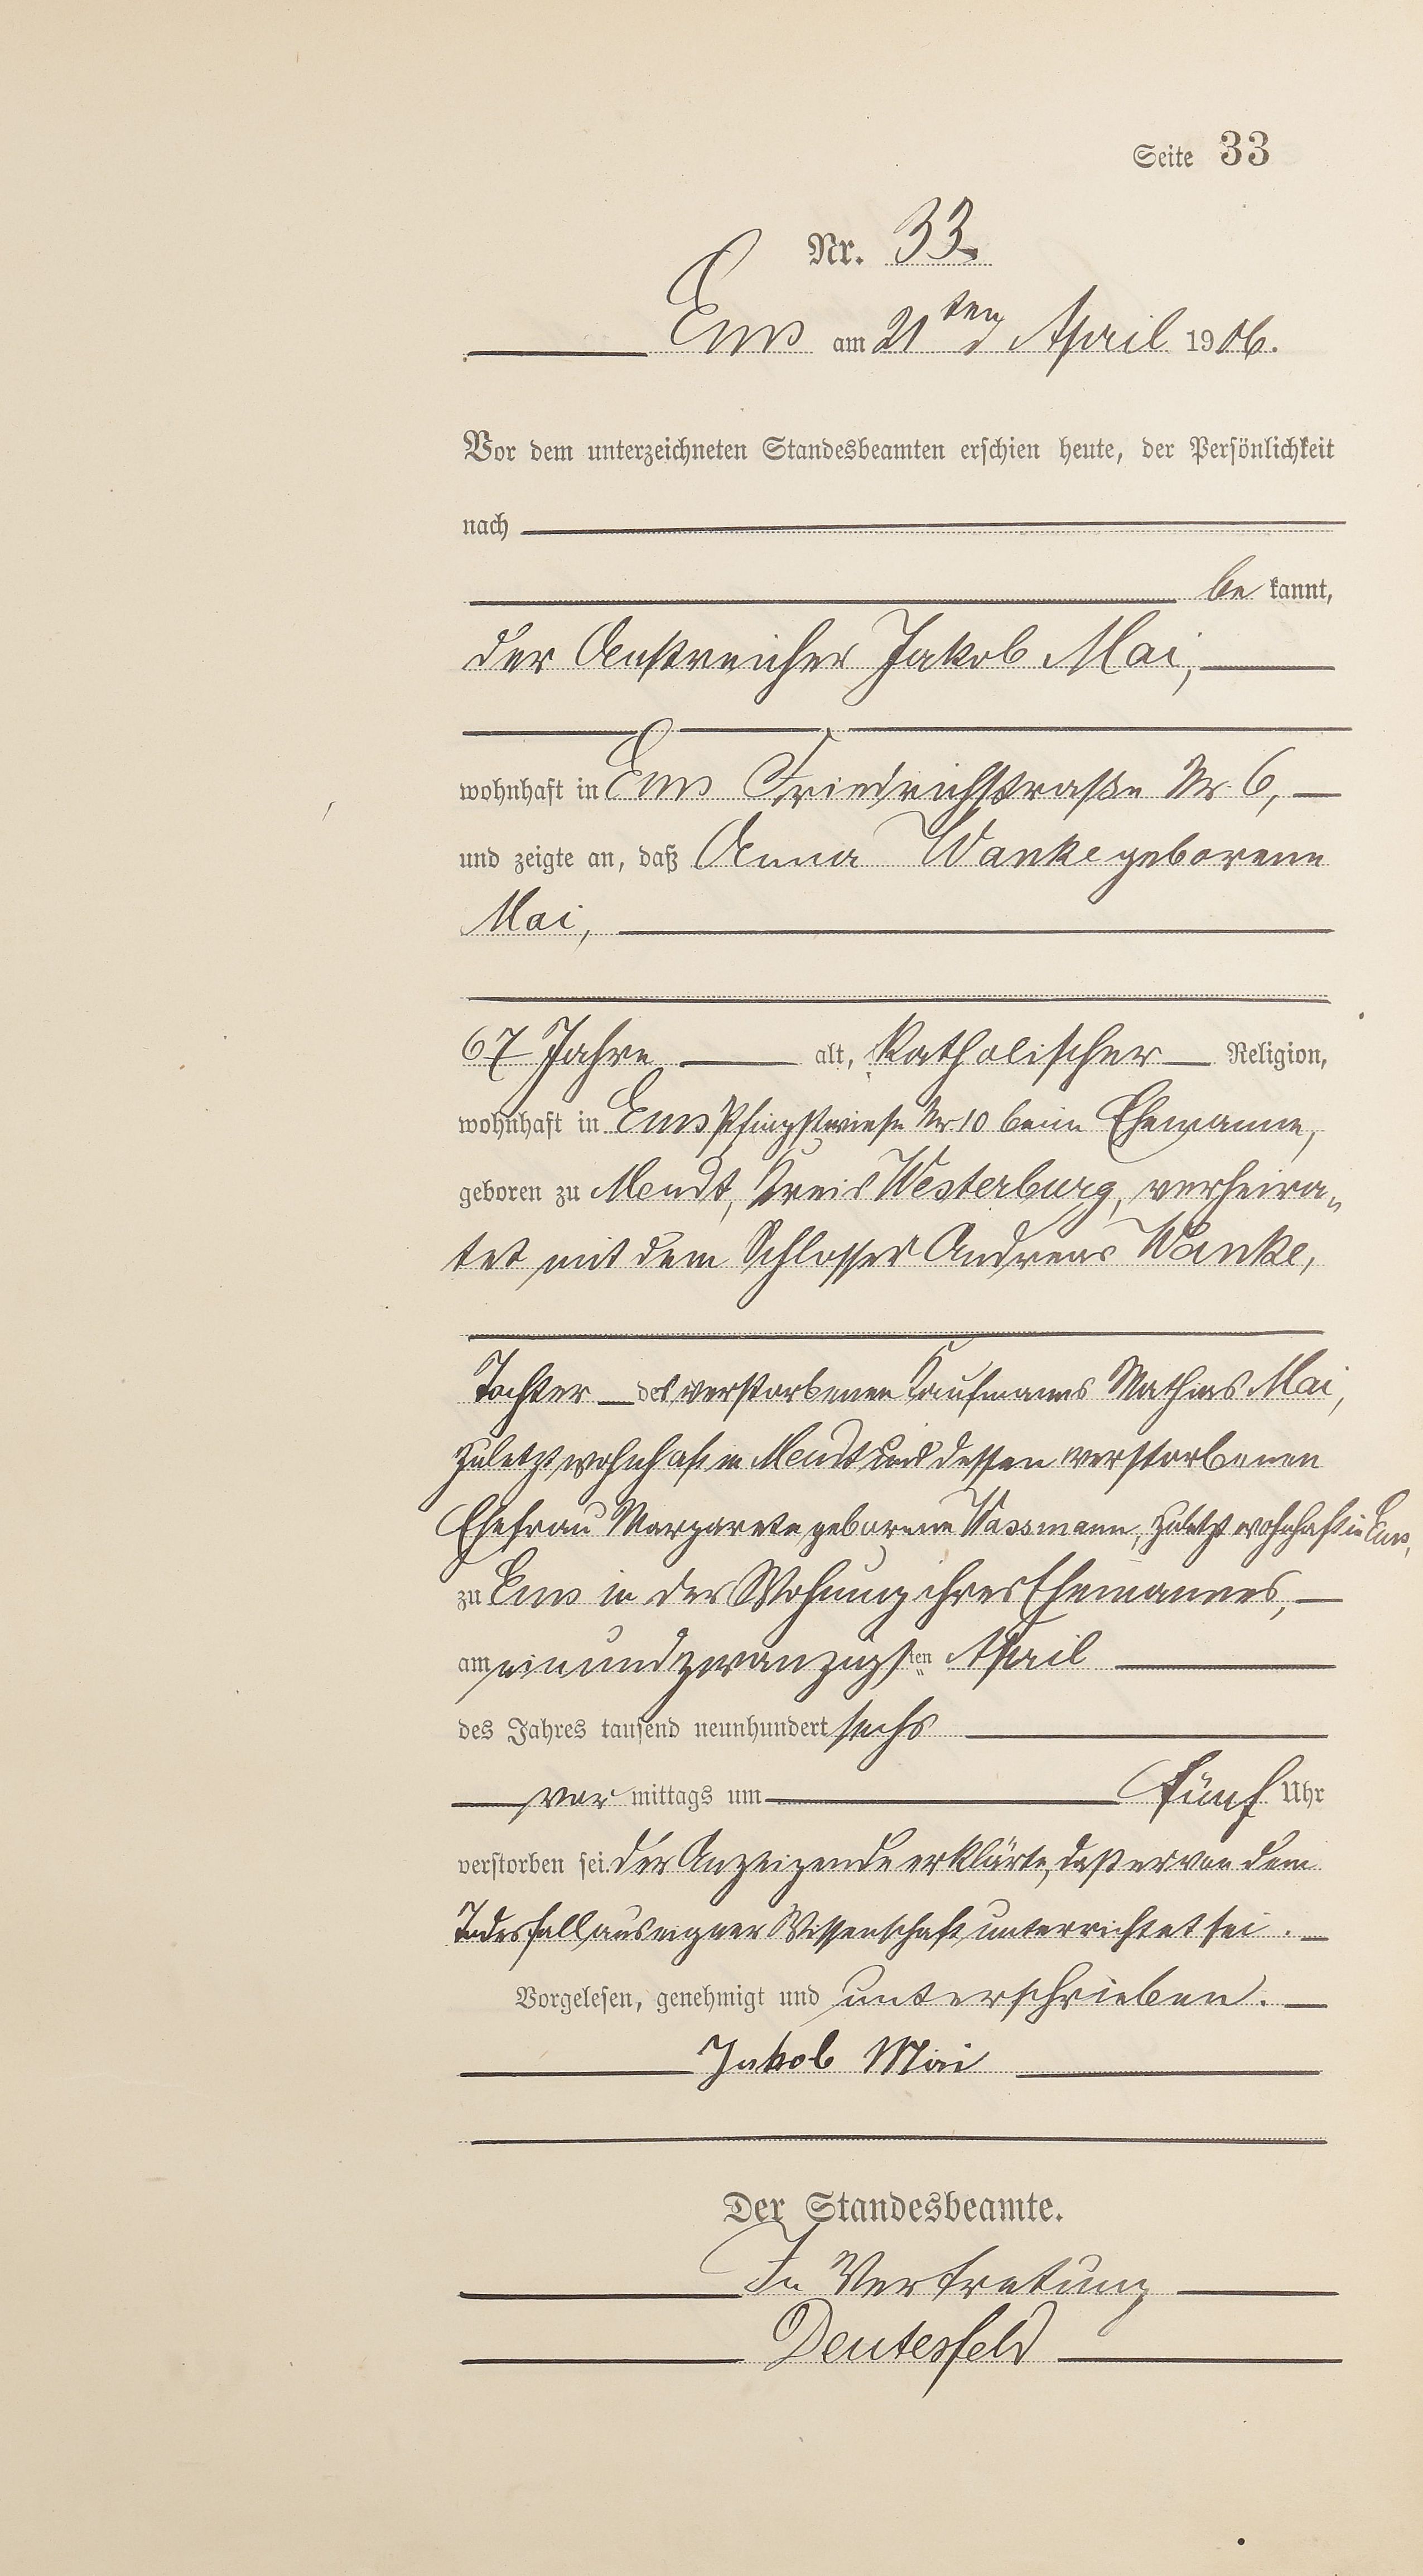 Seite 33
Nr. 33.
Ems am 21ten April 1906.
Vor dem unterzeichneten Standesbeamten erschien heute, der Persönlichkeit
nach
be kannt,
der Anstreicher Jakob Mai,
wohnhaft in Ems Friedrichstraße Nr. 6,
und zeigte an, daß Anna Wanke geborene
Mai,
67 Jahre alt, katholischer Religion,
wohnhaft in Ems Pfingstwiese Nr. 10 beim Ehemanne,
geboren zu Meudt, Kreis Westerburg, verheira-
tet mit dem Schlosser Andreas Wanke,
Tochter des verstorbenen Kaufmanns Mathias Mai,
zuletzt wohnhaft in Meudt und dessen verstorbenen
Ehefrau Margarete geborene Wassmann, zuletzt wohnhaft in Ems,
zu Ems in der Wohnung ihres Ehemannes,
am einundzwanzigsten April
des Jahres tausend neunhundert sechs
vor mittags um fünf Uhr
verstorben sei. Der Anzeigende erklärte, daß er von dem
Todesfall aus eigner Wissenschaft unterrichtet sei.
Vorgelesen, genehmigt und unterschrieben.
Jakob Mai
Der Standesbeamte.
In Vertretung
Deutesfeld